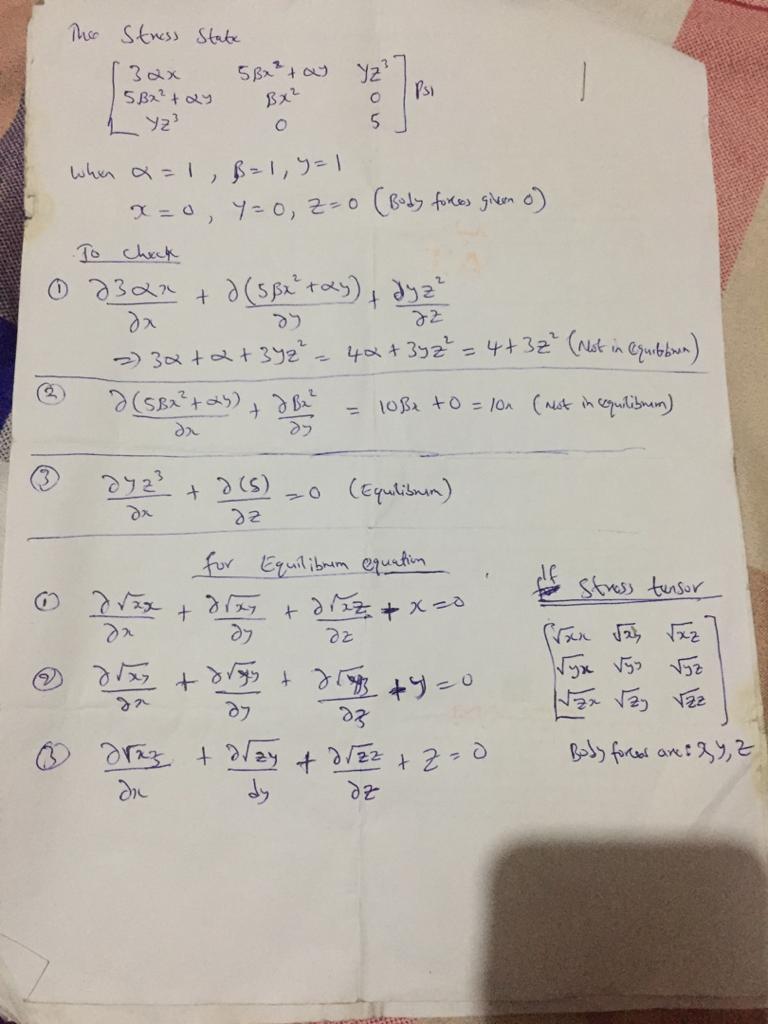 The Stress State
[ 3αx 5βx²+αy γz³ ]
[ 5βx²+αy βx² 0 ] Psi
[ γz³ 0 5 ]
When α = 1 , β=1 , γ=1
x = 0, y=0, z=0 (Body forces given 0)
To check
① ∂3αx/∂x + ∂(5βx²+αy)/∂y + ∂γz²/∂z
⇒ 3α + α + 3γz² = 4α + 3γz² = 4+3z² (Not in equilibrium)
② ∂(5βx²+αy)/∂x + ∂βx²/∂y = 10βx + 0 = 10x (Not in equilibrium)
③ ∂γz³/∂x + ∂(5)/∂z = 0 (Equilibrium)
for Equilibrium equation
① ∂σxx/∂x + ∂σxy/∂y + ∂σxz/∂z + x = 0
② ∂σxy/∂x + ∂σyy/∂y + ∂σyz/∂z + y = 0
③ ∂σxz/∂x + ∂σzy/dy + ∂σzz/∂z + z = 0
If Stress tensor
[ σxx σxy σxz ]
[ σyx σyy σyz ]
[ σzx σzy σzz ]
Body forces are: x, y, z